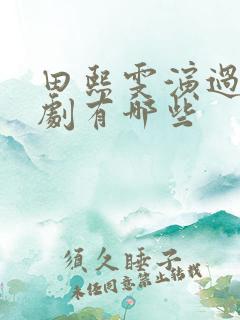 田熙雯演過
劇有哪些
須久睡子
未經同意禁止轉載